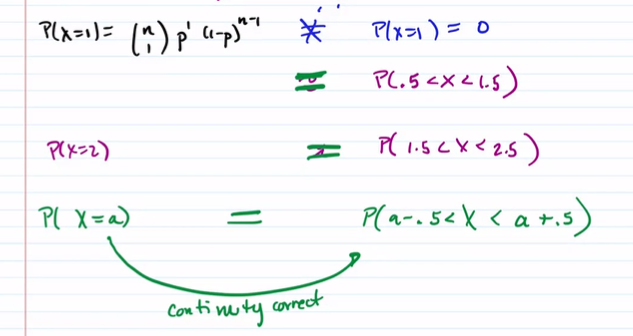 P(x=1) = (n 1) p¹ (1-p)ⁿ⁻¹ ≠ P(x=1) = 0
= P(.5 < x < 1.5)
P(x=2) = P(1.5 < x < 2.5)
P(X=a) = P(a-.5 < X < a+.5)
continuity correct